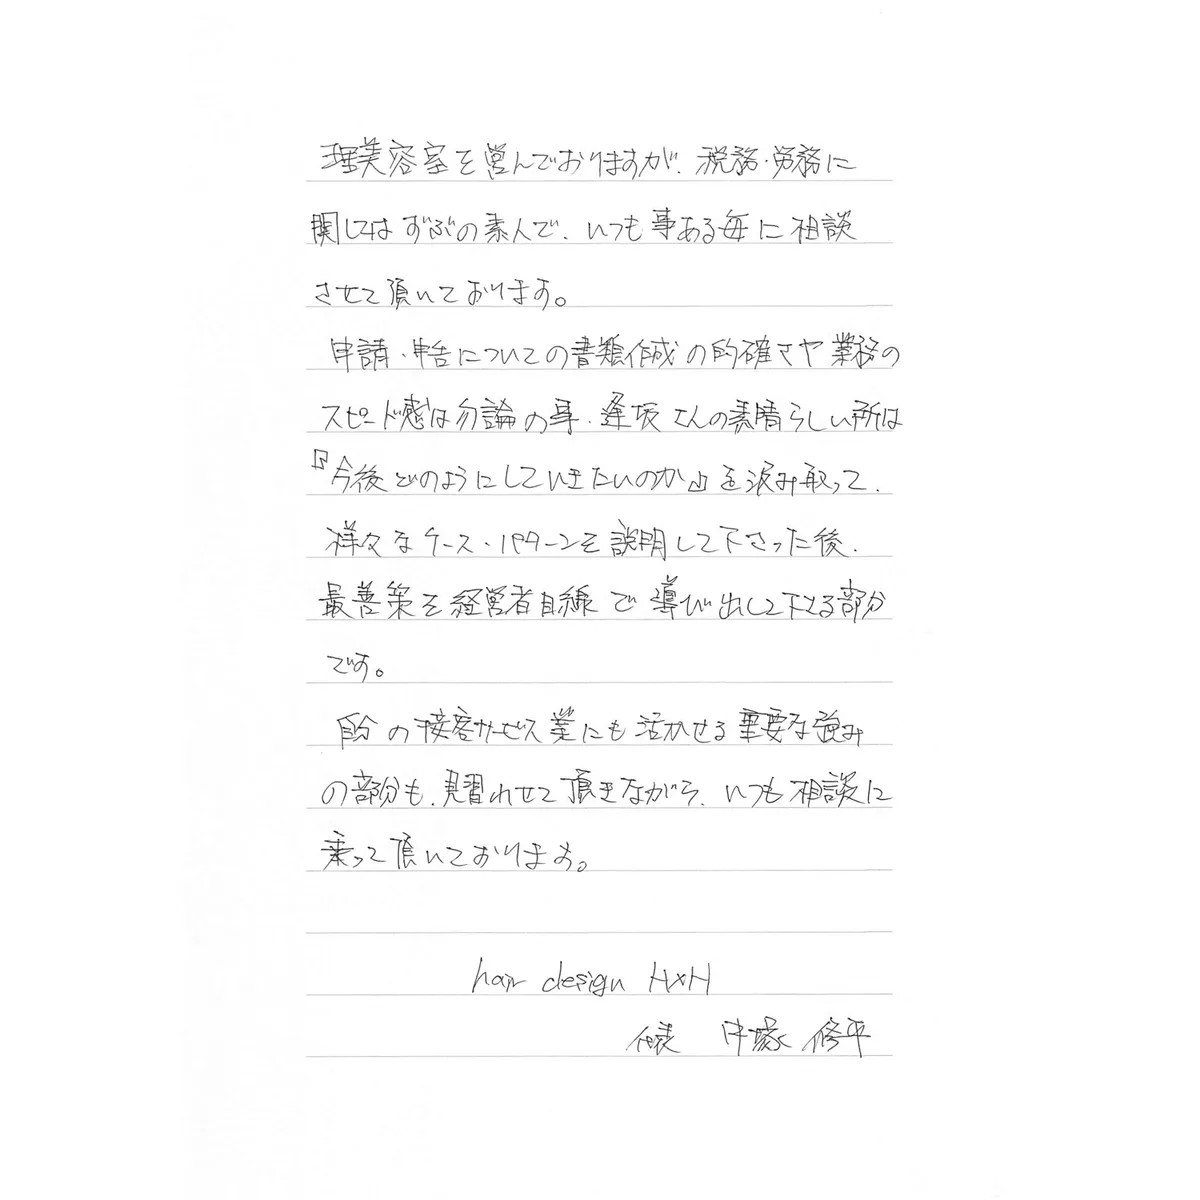 理美容室を営んでおりますが、税務・労務に
関してはずぶの素人で、いつも事ある毎に相談
させて頂いております。
申請・申告についての書類作成の的確さや業務の
スピード感は勿論の事、逢坂さんの素晴らしい所は
『今後どのようにしていきたいのか』を汲み取って、
様々なケース・パターンを説明して下さった後、
最善策を経営者目線で導び出して下さる部分
です。
自分の接客サービス業にも活かせる重要な強み
の部分も、見習わせて頂きながら、いつも相談に
乗って頂いております。
hair design H×H
代表 中塚 修平